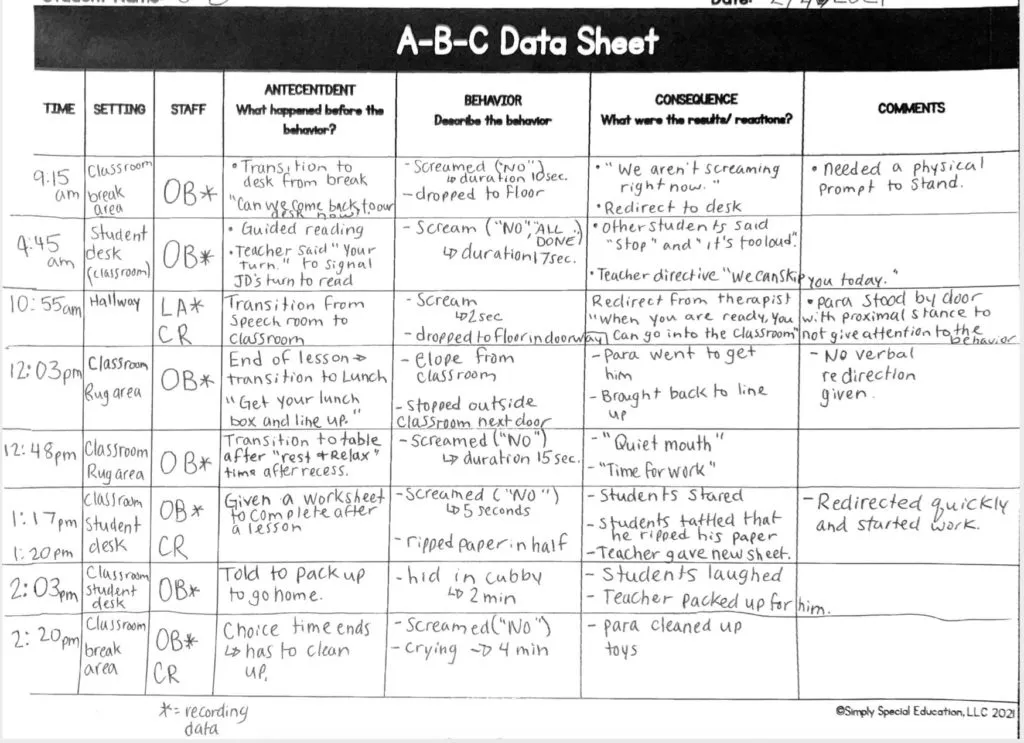 A-B-C Data Sheet
TIME SETTING STAFF ANTECENTDENT What happened before the behavior? BEHAVIOR Describe the behavior CONSEQUENCE What were the results/ reactions? COMMENTS
9:15 am
Classroom
break
area
OB*
• Transition to
desk from break
"Can we come back to our
desk now"
- Screamed ("NO")
↳ duration 10sec.
- dropped to Floor
• "We aren't screaming
right now."
• Redirect to desk
• Needed a physical
prompt to stand.
9:45
am
Student
desk
(classroom)
OB*
• Guided reading
• Teacher said "Your
turn." to signal
JD's turn to read
- Scream ("NO", "ALL
DONE")
↳ duration 17sec.
• Other students said
"Stop" and "it's too loud".
• Teacher directive "We can skip you today."
10:55am
Hallway
LA*
CR
Transition from
Speech room to
classroom
- Scream
↳ 2sec
- dropped to floor in doorway
Redirect from therapist
"When you are ready, you
Can go into the classroom"
• para stood by door
with proximal stance to
not give attention to the
behavior
12:03pm
Classroom
Rug area
OB*
End of lesson →
transition to Lunch
"Get your lunch
box and line up."
- Elope from
classroom
- Stopped outside
Classroom next door
- Para went to get
him
- Brought back to line
up
- No verbal
redirection
given.
12:48pm
Classroom
Rug area
OB*
Transition to table
after "rest + Relax"
time after recess.
- Screamed ("NO")
↳ duration 15sec.
- "Quiet mouth"
- "Time for work"
1:17pm
1:20pm
Classroom
Student
desk
OB*
CR
Given a worksheet
to complete after
a lesson
- Screamed ("NO")
↳ 5 seconds
- ripped paper in half
- Students stared
- Students tattled that
he ripped his paper
- Teacher gave new sheet.
- Redirected quickly
and started work.
2:03pm
Classroom
student
desk
OB*
Told to pack up
to go home.
- hid in cubby
↳ 2 min
- Students laughed
- Teacher packed up for him.
2:20pm
Classroom
break
area
OB*
CR
Choice time ends
↳ has to clean
up.
- Screamed ("NO")
- crying → 4 min
- para cleaned up
toys
*= recording
data
©Simply Special Education, LLC 2021